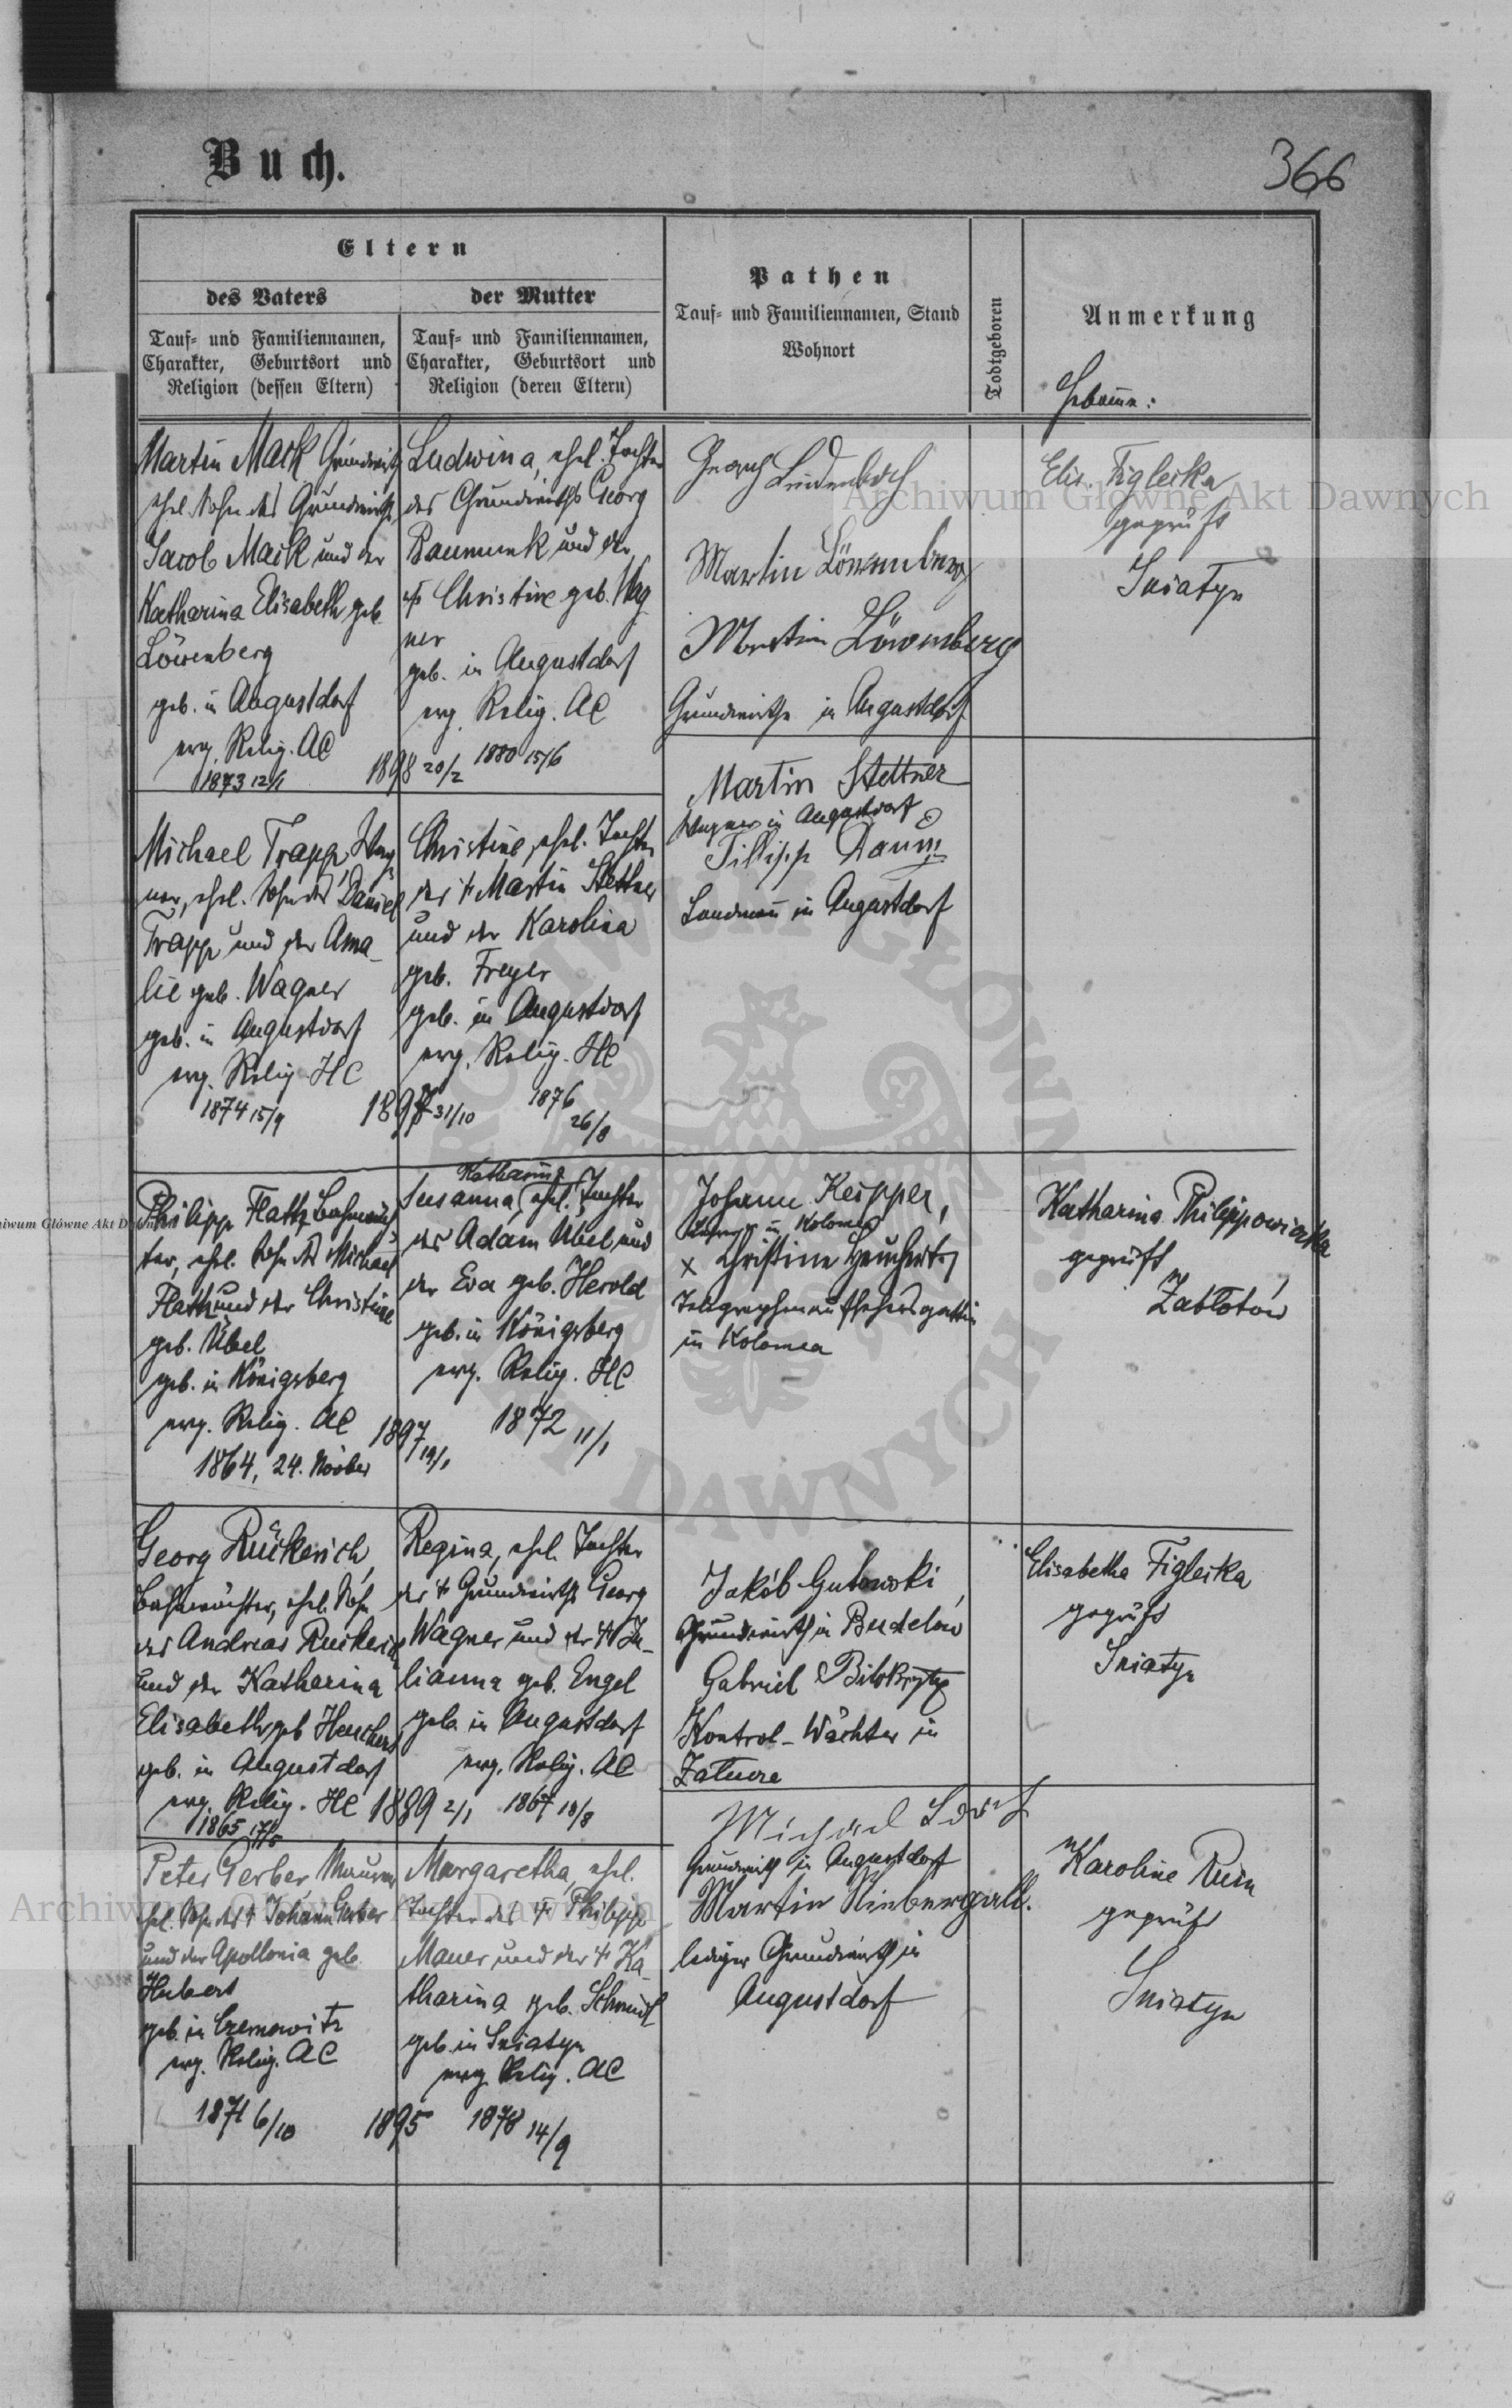 Buch.
366
Eltern
des Vaters
der Mutter
Tauf- und Familiennamen,
Charakter, Geburtsort und
Religion (dessen Eltern)
Tauf- und Familiennamen,
Charakter, Geburtsort und
Religion (deren Eltern)
Pathen
Tauf- und Familiennamen, Stand
Wohnort
Todtgeboren
Anmerkung
Hebamme:
Martin Mack Grundwirth
ehel. Sohn des Grundwirths
Jacob Mack und der
Katharina Elisabeth geb.
Löwenberg
geb. in Augustdorf
evg. Relig. AC
1873 12/1
1898 20/2
Ludwina, ehel. Tochter
des Grundwirths Georg
Baumunk und der
Christine geb. Wag
ner
geb. in Augustdorf
evg. Relig. AC
1880 15/6
Georg
Martin Löwenberg
Martin Löwenberg
Grundwirthe in Augustdorf
Elis. Figleska
geprüft
Sniatyn
Michael Trapp, Wag
ner, ehel. Sohn des Daniel
Trapp und der Ama-
lie geb. Wagner
geb. in Augustdorf
evg. Relig. HC
1874 15/9
31/10
Christine, ehel. Tochter
des † Martin Stettner
und der Karolina
geb. Freyer
geb. in Augustdorf
evg. Relig. HC
1876
26/8
Martin Stettner
Wagner in Augustdorf
Fillipp Daum
Landmann in Augustdorf
Philipp Flath Bahnwäch
ter, ehel. Sohn des Michael
Flath und der Christine
geb. Übel
geb. in Königsberg
evg. Relig. AC
1864, 24. Novber
1897
19/1
Katharina
Susanna, ehel. Tochter
des Adam Übel und
der Eva geb. Herold
geb. in Königsberg
evg. Relig. HC
1872 11/1
Johann Keipper,
in Kolomea
x Christine Heuchert,
Telegraphenaufsehersgattin
in Kolomea
Katharina Philippowiczka
geprüft
Zabłotów
Georg Rückerich,
Bahnwächter, ehel. Sohn
des Andreas Rückerich
und der Katharina
Elisabeth geb. Heuchert
geb. in Augustdorf
evg. Relig. HC
1865
1889 2/1
Regina, ehel. Tochter
des † Grundwirths Georg
Wagner und der † Ju-
lianna geb. Engel
geb. in Augustdorf
evg. Relig. AC
1867 18/8
Jakób Gutowski
Grundwirth in
Gabriel
Kontrol-Wächter in
Elisabetha Figleska
geprüft
Sniatyn
Peter Gerber Maurer
ehel. Sohn des † Johann Gerber
und der Apollonia geb.
Hubert
geb. in Czernowitz
evg. Relig. AC
1871 6/10
1895
Margaretha, ehel.
Tochter des † Philipp
Mauer und der † Ka-
tharina geb. Schmidt
geb. in Sniatyn
evg. Relig. AC
1878 14/9
Michael
Grundwirth in Augustdorf
Martin Niebergall.
lediger Grundwirth in
Augustdorf
Karoline
geprüft
Sniatyn
Archiwum Główne Akt Dawnych
Archiwum Główne Akt Dawnych